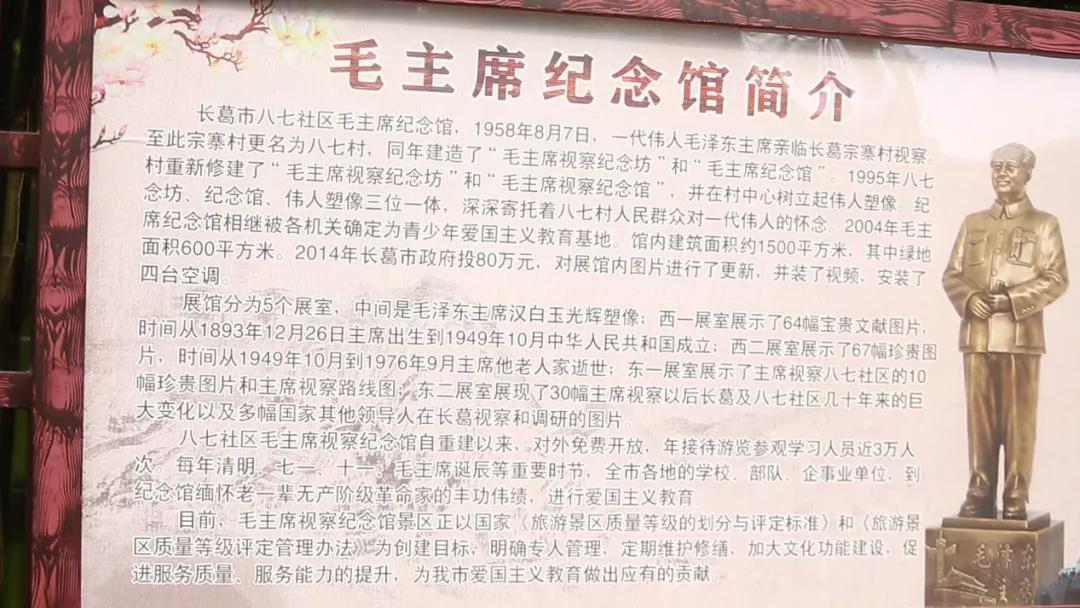 毛主席纪念馆简介
长葛市八七社区毛主席纪念馆，1958年8月7日，一代伟人毛泽东主席亲临长葛宗寨村视察。
至此宗寨村更名为八七村，同年建造了“毛主席视察纪念坊”和“毛主席纪念馆”。1995年八七
村重新修建了“毛主席视察纪念坊”和“毛主席视察纪念馆”，并在村中心树立起伟人塑像。纪
念坊、纪念馆、伟人塑像三位一体，深深寄托着八七村人民群众对一代伟人的怀念。2004年毛主
席纪念馆相继被各机关确定为青少年爱国主义教育基地。馆内建筑面积约1500平方米，其中绿地
面积600平方米。2014年长葛市政府投80万元，对展馆内图片进行了更新，并装了视频，安装了
四台空调。
展馆分为5个展室，中间是毛泽东主席汉白玉光辉塑像；西一展室展示了64幅宝贵文献图片，
时间从1893年12月26日主席出生到1949年10月中华人民共和国成立；西二展室展示了67幅珍贵图
片，时间从1949年10月到1976年9月主席他老人家逝世；东一展室展示了主席视察八七社区的10
幅珍贵图片和主席视察路线图；东二展室展现了30幅主席视察以后长葛及八七社区几十年来的巨
大变化以及多幅国家其他领导人在长葛视察和调研的图片。
八七社区毛主席视察纪念馆自重建以来，对外免费开放，年接待游览参观学习人员近3万人
次。每年清明、七一、十一、毛主席诞辰等重要时节，全市各地的学校、部队、企事业单位，到
纪念馆缅怀老一辈无产阶级革命家的丰功伟绩，进行爱国主义教育
目前，毛主席视察纪念馆景区正以国家《旅游景区质量等级的划分与评定标准》和《旅游景
区质量等级评定管理办法》为创建目标，明确专人管理，定期维护修缮，加大文化功能建设，促
进服务质量、服务能力的提升，为我市爱国主义教育做出应有的贡献
毛泽东
主席